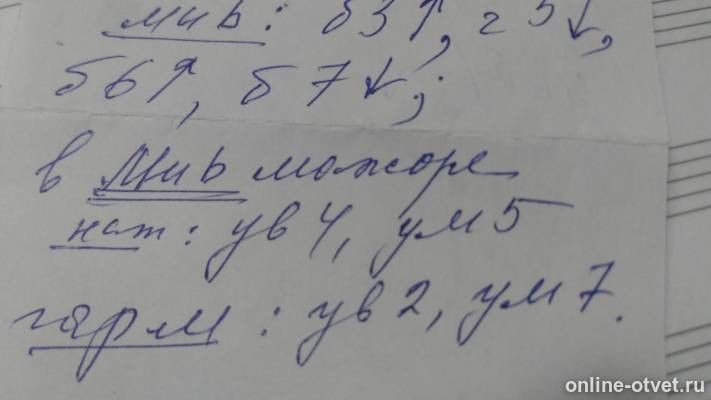 ми b: б3↑, ч5↓,
б6↑, б7↓;
в Ми b мажоре
нат: ув4, ум5
гарм: ув2, ум7.
online-otvet.ru